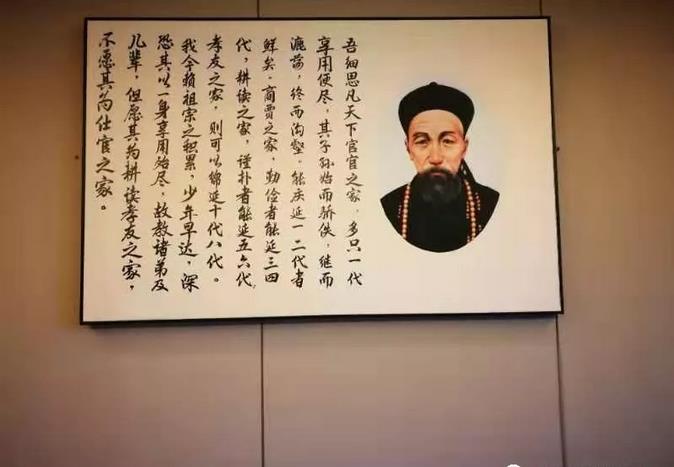 吾细思凡天下官宦之家，多只一代
享用便尽，其子孙始而骄佚，继而
漉荡，终而沟壑。能庆延一二代者
鲜矣。商贾之家，勤俭者能延三四
代，耕读之家，谨朴者能延五六代，
孝友之家，则可以绵延十代八代。
我今赖祖宗之积累，少年早达，深
恐其以一身享用殆尽，故教诸弟及
儿辈，但愿其为耕读孝友之家，
不愿其为仕宦之家。